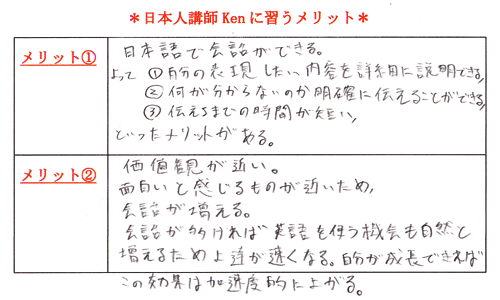 ＊日本人講師 Ken に習うメリット＊
メリット①
日本語で会話ができる。
よって ①自分の表現したい内容を詳細に説明できる,
②何が分からないのか明確に伝えることができる,
③伝えるまでの時間が短い,
といったメリットがある。
メリット②
価値観が近い。
面白いと感じるものが近いため,
会話が増える。
会話が多ければ英語を使う機会も自然と
増えるため上達が速くなる。自分が成長できれば
この効果は加速度的に上がる。